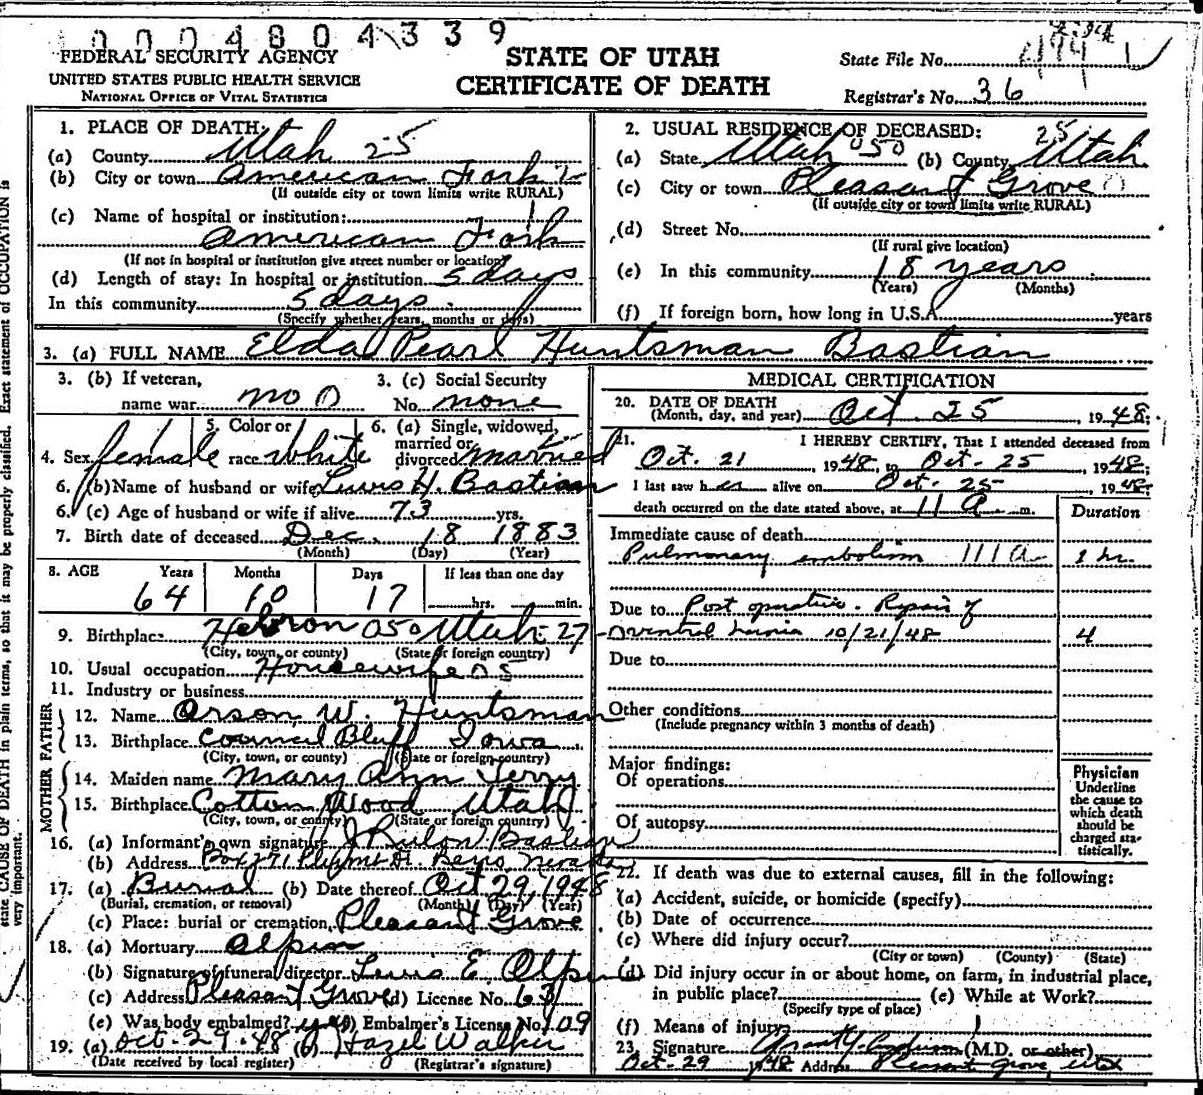 0004804339
FEDERAL SECURITY AGENCY
UNITED STATES PUBLIC HEALTH SERVICE
NATIONAL OFFICE OF VITAL STATISTICS
STATE OF UTAH
CERTIFICATE OF DEATH
State File No.
Registrar's No. 36
1. PLACE OF DEATH:
(a) County Utah 25
(b) City or town American Fork
(If outside city or town limits write RURAL)
(c) Name of hospital or institution:
American Fork
(If not in hospital or institution give street number or location)
(d) Length of stay: In hospital or institution 5 days
In this community 5 days
(Specify whether years, months or days)
2. USUAL RESIDENCE OF DECEASED:
(a) State Utah 050 (b) County Utah 25
(c) City or town Pleasant Grove
(If outside city or town limits write RURAL)
(d) Street No.
(If rural give location)
(e) In this community 18 years
(Years) (Months)
(f) If foreign born, how long in U.S.A. years
3. (a) FULL NAME Elda Pearl Huntsman Bastian
3. (b) If veteran,
name war no 0
3. (c) Social Security
No. none
4. Sex female
5. Color or
race White
6. (a) Single, widowed,
married or
divorced married
6. (b) Name of husband or wife Lewis H. Bastian
6. (c) Age of husband or wife if alive 73 yrs.
7. Birth date of deceased Dec. 18 1883
(Month) (Day) (Year)
8. AGE Years Months Days If less than one day
64 10 17 hrs. min.
9. Birthplace Hebron 050 Utah 27
(City, town, or county) (State or foreign country)
10. Usual occupation Housewife
11. Industry or business
FATHER
12. Name Orson W. Huntsman
13. Birthplace Council Bluff Iowa
(City, town, or county) (State or foreign country)
MOTHER
14. Maiden name Mary Ann Terry
15. Birthplace Cotton Wood Utah
(City, town, or county) (State or foreign country)
16. (a) Informant's own signature J Rulon Bastian
(b) Address Box 71 Reno Nevada
17. (a) Burial (b) Date thereof Oct 29, 1948
(Burial, cremation, or removal) (Month) (Day) (Year)
(c) Place: burial or cremation Pleasant Grove
18. (a) Mortuary Olpin
(b) Signature of funeral director Lewis E. Olpin
(c) Address Pleasant Grove (d) License No. 63
(e) Was body embalmed? yes (f) Embalmer's License No. 109
19. (a) Oct-29-48 (b) Hazel Walker
(Date received by local register) (Registrar's signature)
MEDICAL CERTIFICATION
20. DATE OF DEATH
(Month, day, and year) Oct. 25, 1948.
21. I HEREBY CERTIFY, That I attended deceased from
Oct. 21 1948, to Oct-25, 1948;
I last saw her alive on Oct-25- 1948.
death occurred on the date stated above, at 11 a m.
Duration
Immediate cause of death
Pulmonary embolism 111a 1 hr.
Due to Post operative. Repair of
ventral hernia 10/21/48 4
Due to
Other conditions
(Include pregnancy within 3 months of death)
Major findings:
Of operations
Of autopsy
Physician
Underline
the cause to
which death
should be
charged sta-
tistically.
22. If death was due to external causes, fill in the following:
(a) Accident, suicide, or homicide (specify)
(b) Date of occurrence
(c) Where did injury occur?
(City or town) (County) (State)
(d) Did injury occur in or about home, on farm, in industrial place,
in public place? (e) While at Work?
(Specify type of place)
(f) Means of injury
23. Signature (M.D. or other)
Oct-29 1948 Address Pleasant Grove, Utah
state CAUSE OF DEATH in plain terms, so that it may be properly classified. Exact statement of OCCUPATION is
very important.